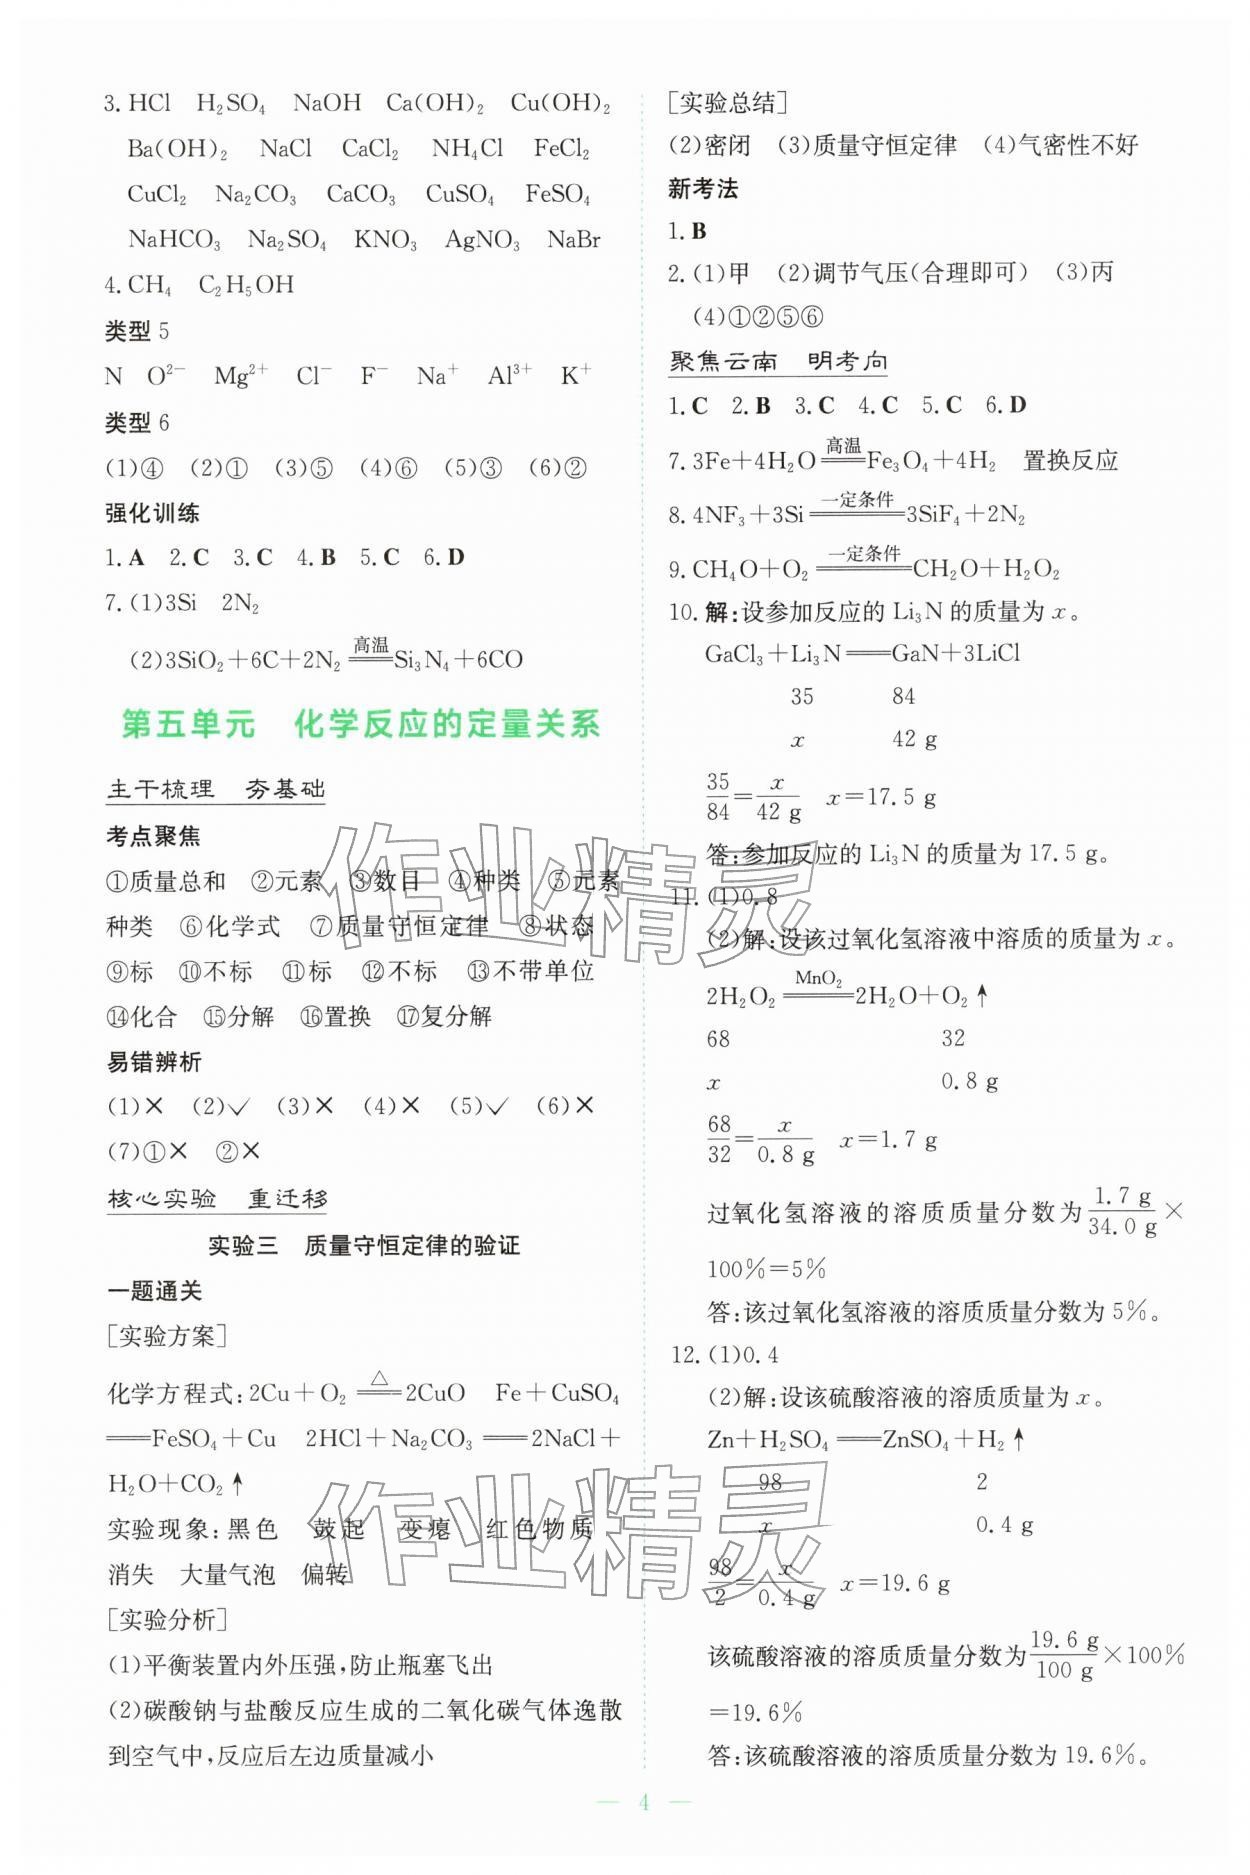 3. HCl H₂SO₄ NaOH Ca(OH)₂ Cu(OH)₂
Ba(OH)₂ NaCl CaCl₂ NH₄Cl FeCl₂
CuCl₂ Na₂CO₃ CaCO₃ CuSO₄ FeSO₄
NaHCO₃ Na₂SO₄ KNO₃ AgNO₃ NaBr
4. CH₄ C₂H₅OH
类型 5
N O²⁻ Mg²⁺ Cl⁻ F⁻ Na⁺ Al³⁺ K⁺
类型 6
(1)④ (2)① (3)⑤ (4)⑥ (5)③ (6)②
强化训练
1. A 2. C 3. C 4. B 5. C 6. D
7. (1)3Si 2N₂
(2)3SiO₂+6C+2N₂ ══高温══ Si₃N₄+6CO
第五单元 化学反应的定量关系
主干梳理 夯基础
考点聚焦
①质量总和 ②元素 ③数目 ④种类 ⑤元素
种类 ⑥化学式 ⑦质量守恒定律 ⑧状态
⑨标 ⑩不标 ⑪标 ⑫不标 ⑬不带单位
⑭化合 ⑮分解 ⑯置换 ⑰复分解
易错辨析
(1)× (2)✓ (3)× (4)× (5)✓ (6)×
(7)①× ②×
核心实验 重迁移
实验三 质量守恒定律的验证
一题通关
[实验方案]
化学方程式:2Cu+O₂ ══△══ 2CuO Fe+CuSO₄
══FeSO₄+Cu 2HCl+Na₂CO₃══2NaCl+
H₂O+CO₂↑
实验现象:黑色 鼓起 变瘪 红色物质
消失 大量气泡 偏转
[实验分析]
(1)平衡装置内外压强,防止瓶塞飞出
(2)碳酸钠与盐酸反应生成的二氧化碳气体逸散
到空气中,反应后左边质量减小
[实验总结]
(2)密闭 (3)质量守恒定律 (4)气密性不好
新考法
1. B
2. (1)甲 (2)调节气压(合理即可) (3)丙
(4)①②⑤⑥
聚焦云南 明考向
1. C 2. B 3. C 4. C 5. C 6. D
7. 3Fe+4H₂O ══高温══ Fe₃O₄+4H₂ 置换反应
8. 4NF₃+3Si ══一定条件══ 3SiF₄+2N₂
9. CH₄O+O₂ ══一定条件══ CH₂O+H₂O₂
10. 解:设参加反应的 Li₃N 的质量为 x。
GaCl₃+Li₃N══GaN+3LiCl
35 84
x 42 g
35/84=x/42 g x=17.5 g
答:参加反应的 Li₃N 的质量为 17.5 g。
11. (1)0.8
(2)解:设该过氧化氢溶液中溶质的质量为 x。
2H₂O₂ ══MnO₂══ 2H₂O+O₂↑
68 32
x 0.8 g
68/32=x/0.8 g x=1.7 g
过氧化氢溶液的溶质质量分数为 1.7 g/34.0 g×
100%=5%
答:该过氧化氢溶液的溶质质量分数为 5%。
12. (1)0.4
(2)解:设该硫酸溶液的溶质质量为 x。
Zn+H₂SO₄══ZnSO₄+H₂↑
98 2
x 0.4 g
98/2=x/0.4 g x=19.6 g
该硫酸溶液的溶质质量分数为 19.6 g/100 g×100%
=19.6%
答:该硫酸溶液的溶质质量分数为 19.6%。
— 4 —
作业精灵
作业精灵